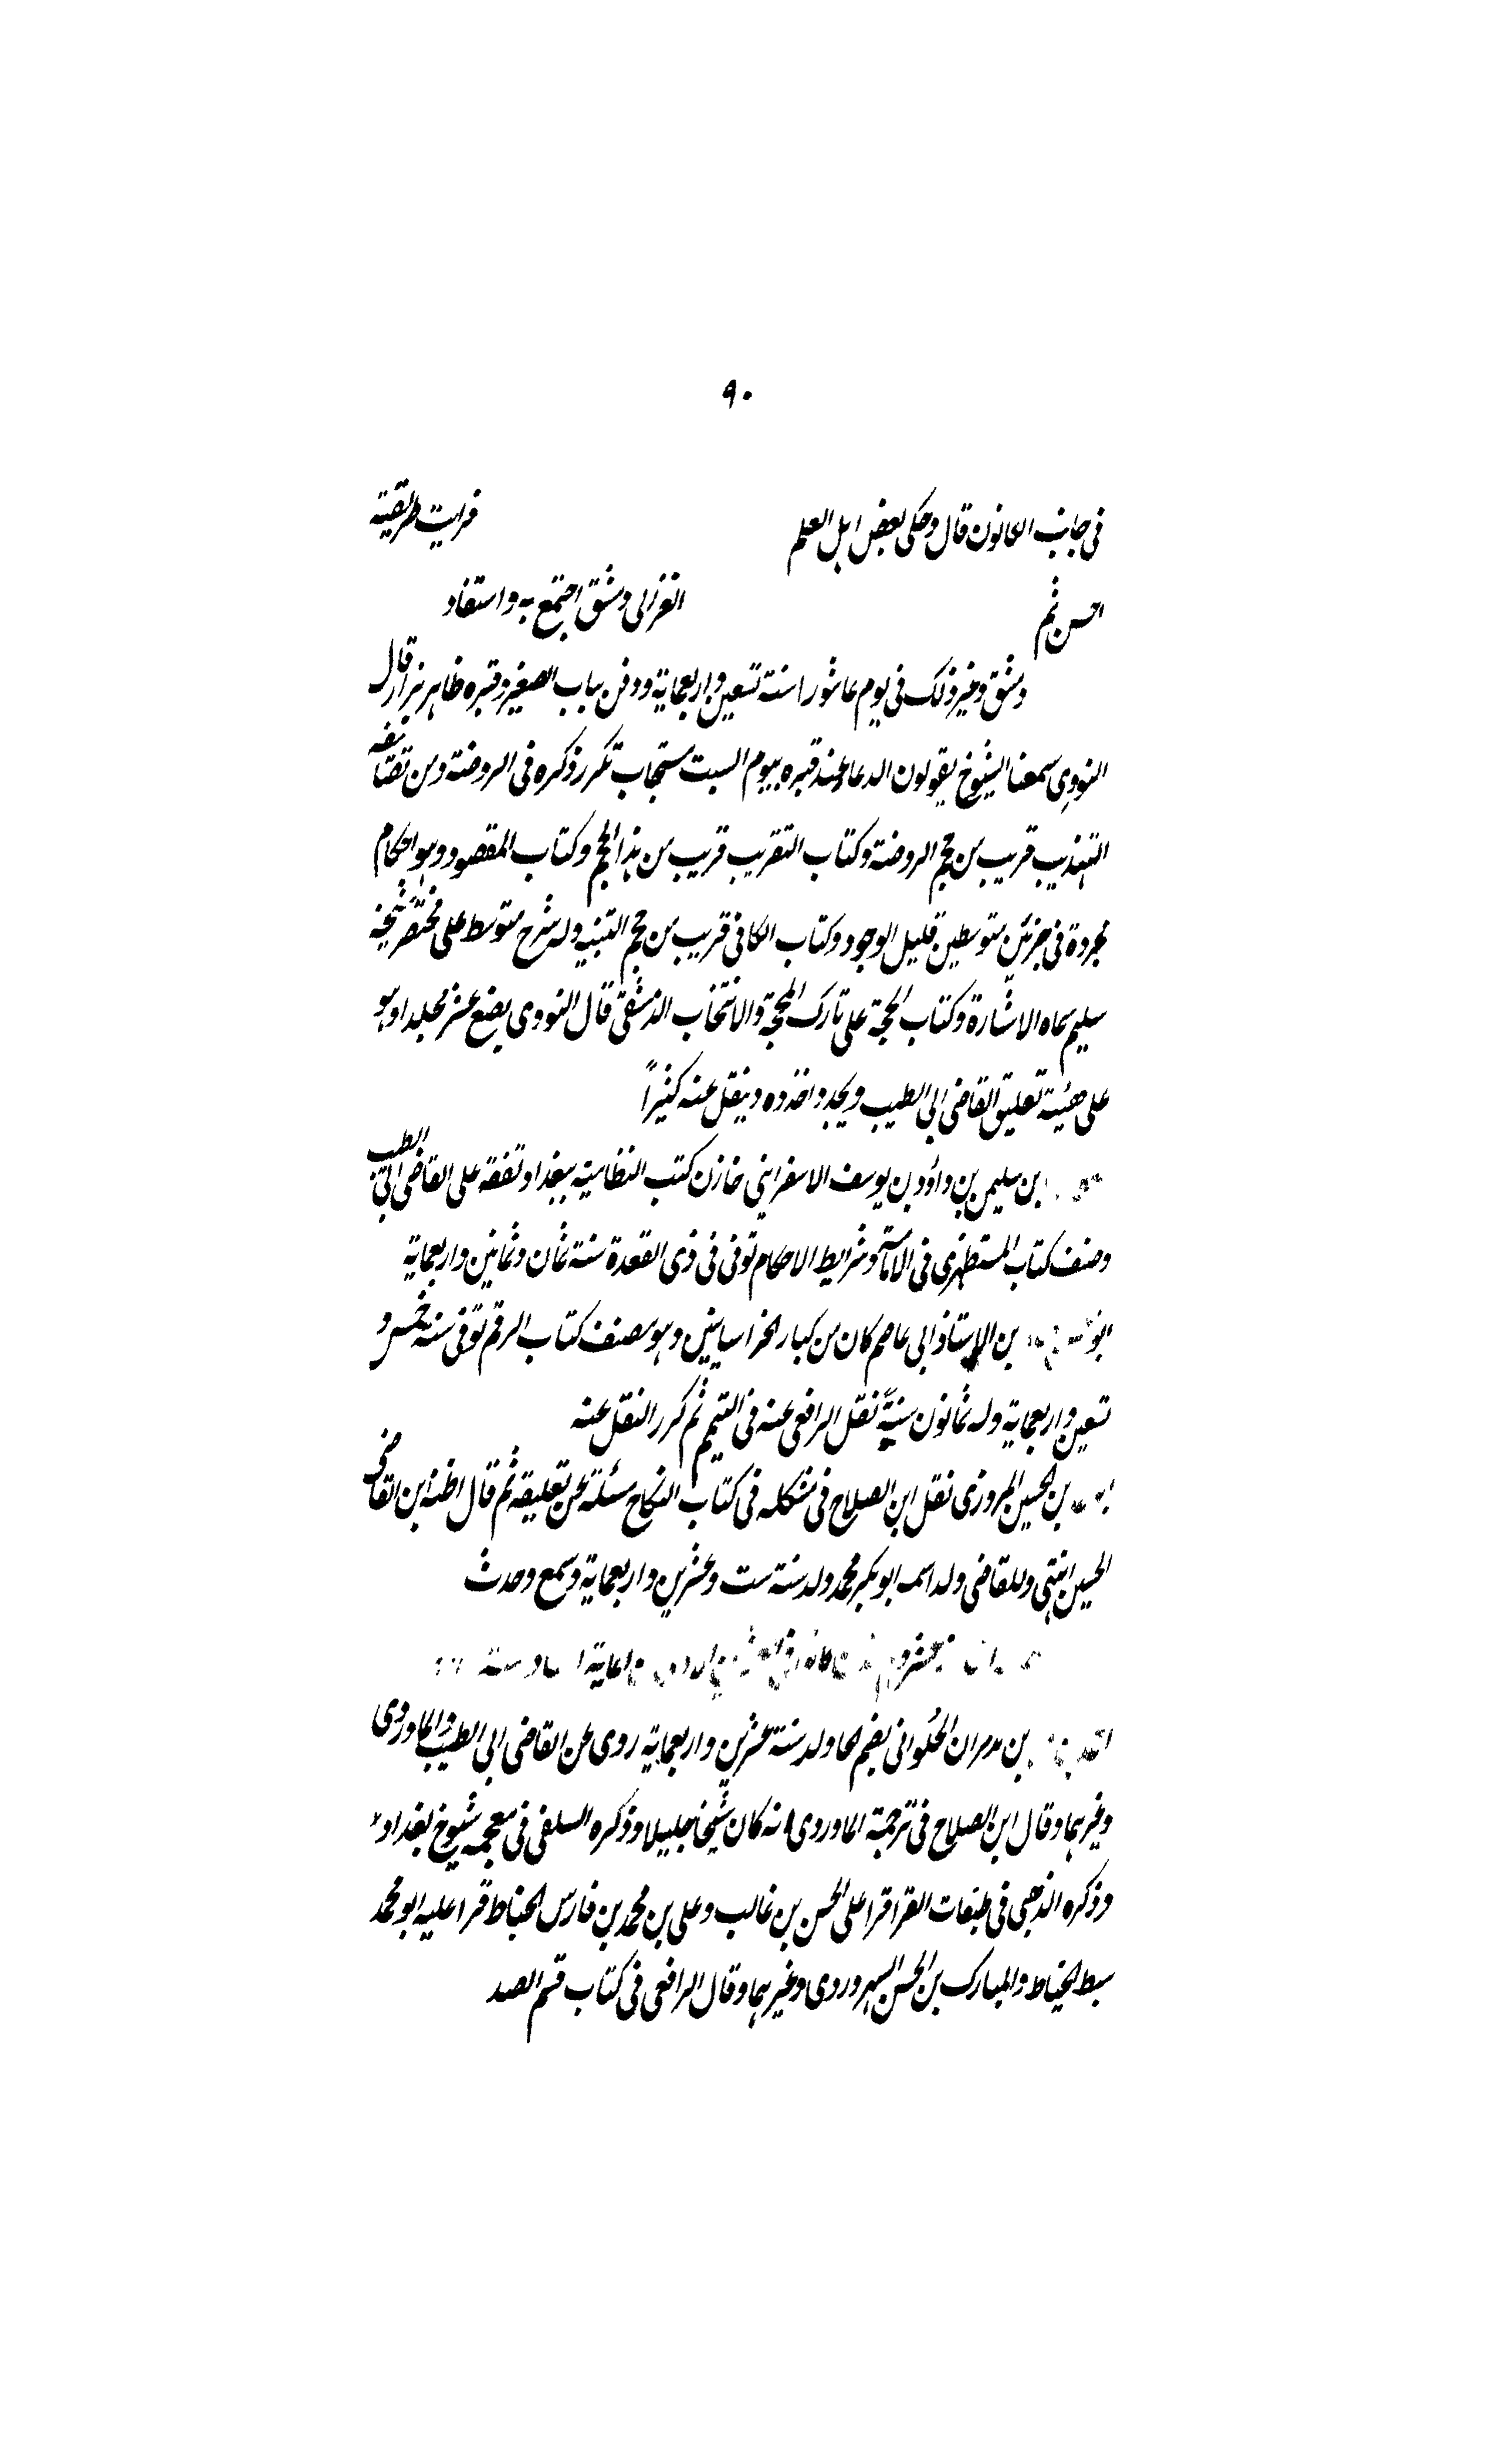 ٩٠
فى جانب الكانون قال وحكى بعض اہل العلم فرايت طريقية
احسن ثم الغزالى دمشق اجتمع به واستفاد
دمشق وغير ذلك فى يوم عاشورا سنة تسعين واربعماية ودفن بباب الصغير وقبره ظاہر يزار قال
النووى سمعنا الشيوخ يقولون الدعا عند قبره بيوم السبت مستجاب تكرر ذكره فى الروضة ومن تصانيفه
التہذيب قريب من حجم الروضة وكتاب التقريب قريب من ہذا الحجم وكتاب المقصود وہو احكام
مجردة فى جزئين متوسطين قليل الوجود وكتاب الكافى قريب من حجم التنبيه وله شرح متوسط على مختصر شيخه
سليم سماه الاشارة وكتاب الحجة على تارك المحجة والانتخاب الدمشقى قال النووى بضع عشر مجلدا وہو
على هيئة تعليق القاضى ابى الطيب ويجدد اخذه وينقل عنه كثيراً
بن سليمن بن داؤد بن يوسف الاسفراينى خازن كتب النظامية ببغداد تفقه على القاضى ابى الطيب
وصنف كتاب المستظهرى فى الامامة وشرايط الاحكام توفى فى ذى القعدة سنة ثمان وثمانين واربعماية
بن الاستاذ ابى عاصم كان من كبار الخراسانيين وہو مصنف كتاب الرقم توفى سنة خمس و
تسعين واربعماية وله ثمانون سنةً نقل الرافعى عنه فى التيمم ثم كرر النقل عنه
بن الحسين المروزى نقل ابن الصلاح فى مشكله فى كتاب النكاح مسئلة عن تعليقه ثم قال اظنه ابن القاضى
الحسين انتہى وللقاضى ولد اسمه ابو بكر محمد ولد سنة ست وعشرين واربعماية وسمع وحدث
بن بدران الحُلوانى بضم الحا ولد سنة عشرين واربعماية روى عن القاضى ابى الطيب والماوردى
وغيرہما وقال ابن الصلاح فى ترجمة الماوردى انه كان شيخا جليلا وذكره السلفى فى معجمه شيوخ بغداد
وذكره الذهبى فى طبقات القرا قرا على الحسن بن غالب وعلى بن محمد بن فارس الخياط قرا عليه ابو محمد
سبط الخياط والمبارك بن الحسن السہروردى وغيرہما وقال الرافعى فى كتاب قسم الصد